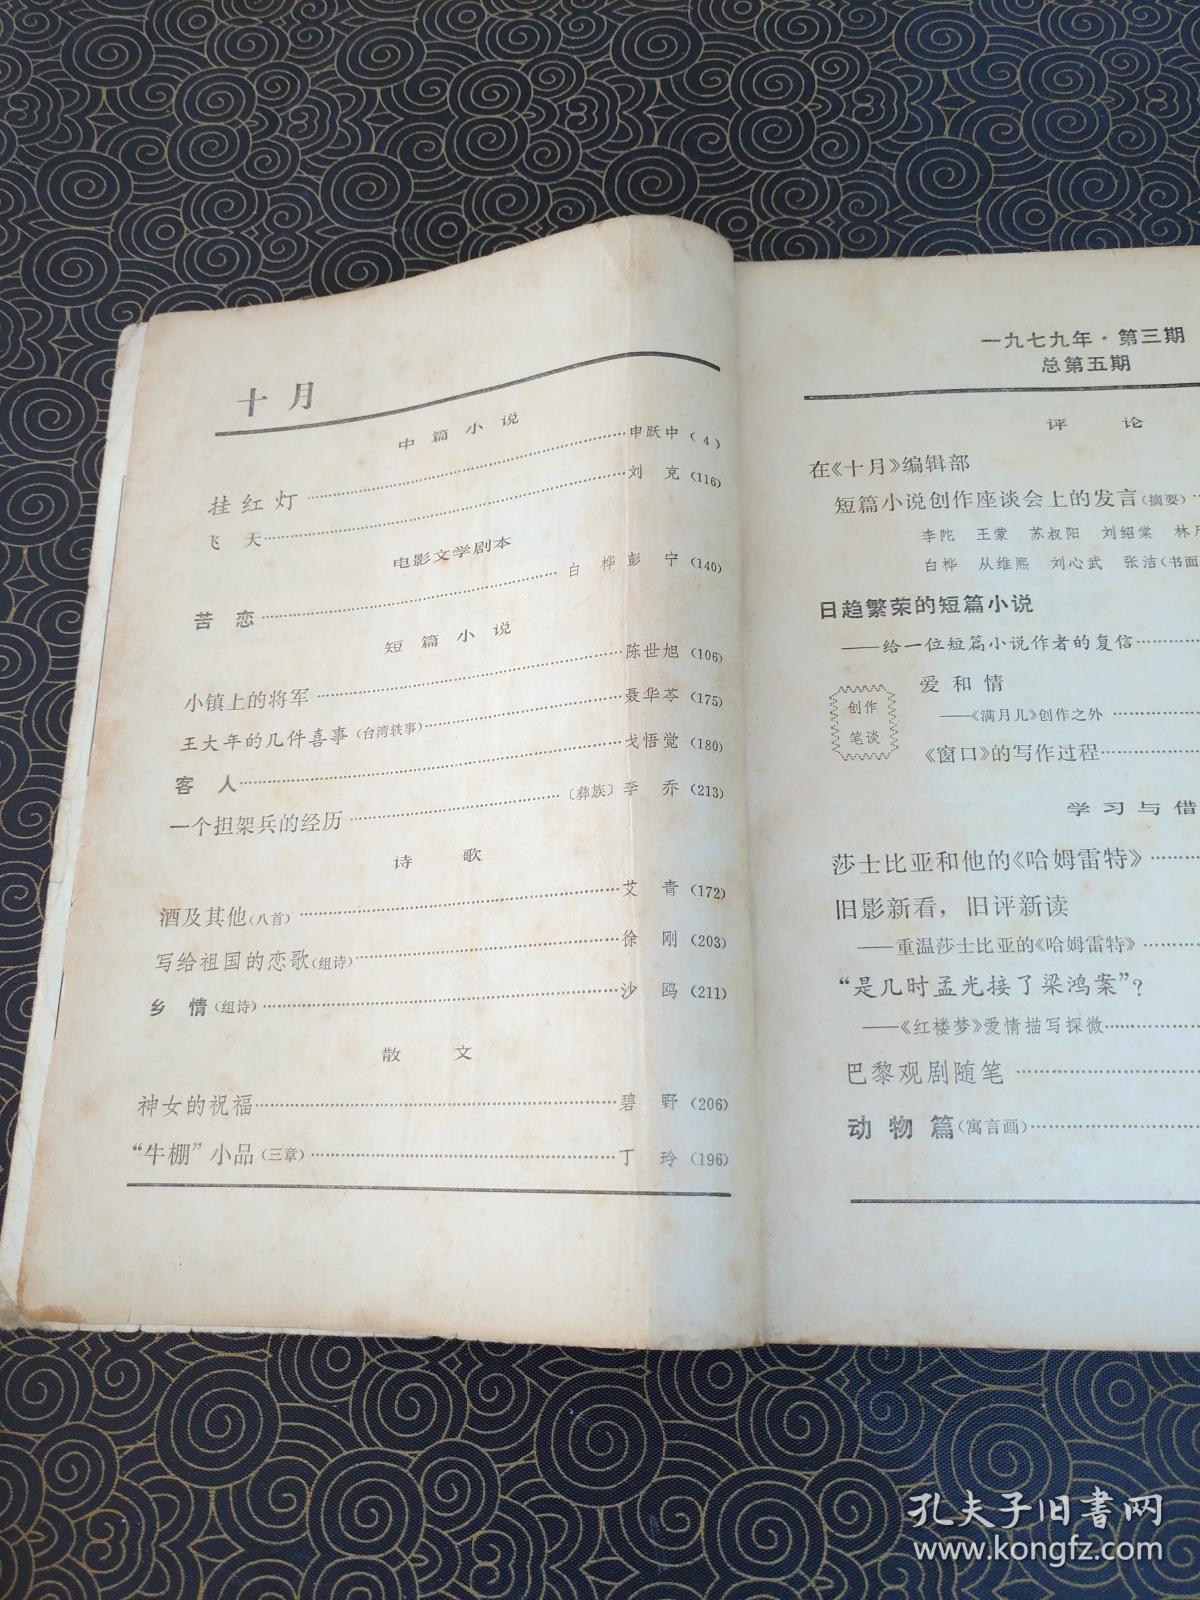 十月
中篇小说
挂红灯……申跃中(4)
飞天……刘克(116)
电影文学剧本
苦恋……白桦 彭宁(140)
短篇小说
小镇上的将军……陈世旭(106)
王大年的几件喜事(台湾轶事)……聂华苓(175)
客人……戈悟觉(180)
一个担架兵的经历……〔彝族〕李乔(213)
诗歌
酒及其他(八首)……艾青(172)
写给祖国的恋歌(组诗)……徐刚(203)
乡情(组诗)……沙鸥(211)
散文
神女的祝福……碧野(206)
“牛棚”小品(三章)……丁玲(196)
一九七九年·第三期
总第五期
评论
在《十月》编辑部
短篇小说创作座谈会上的发言(摘要)……
李陀 王蒙 苏叔阳 刘绍棠 林
白桦 从维熙 刘心武 张洁(书面
日趋繁荣的短篇小说
——给一位短篇小说作者的复信……
创作
笔谈
爱和情
——《满月儿》创作之外……
《窗口》的写作过程……
学习与借
莎士比亚和他的《哈姆雷特》……
旧影新看，旧评新读
——重温莎士比亚的《哈姆雷特》……
“是几时孟光接了梁鸿案”?
——《红楼梦》爱情描写探微……
巴黎观剧随笔……
动物篇(寓言画)……
孔夫子旧书网
www.kongfz.com